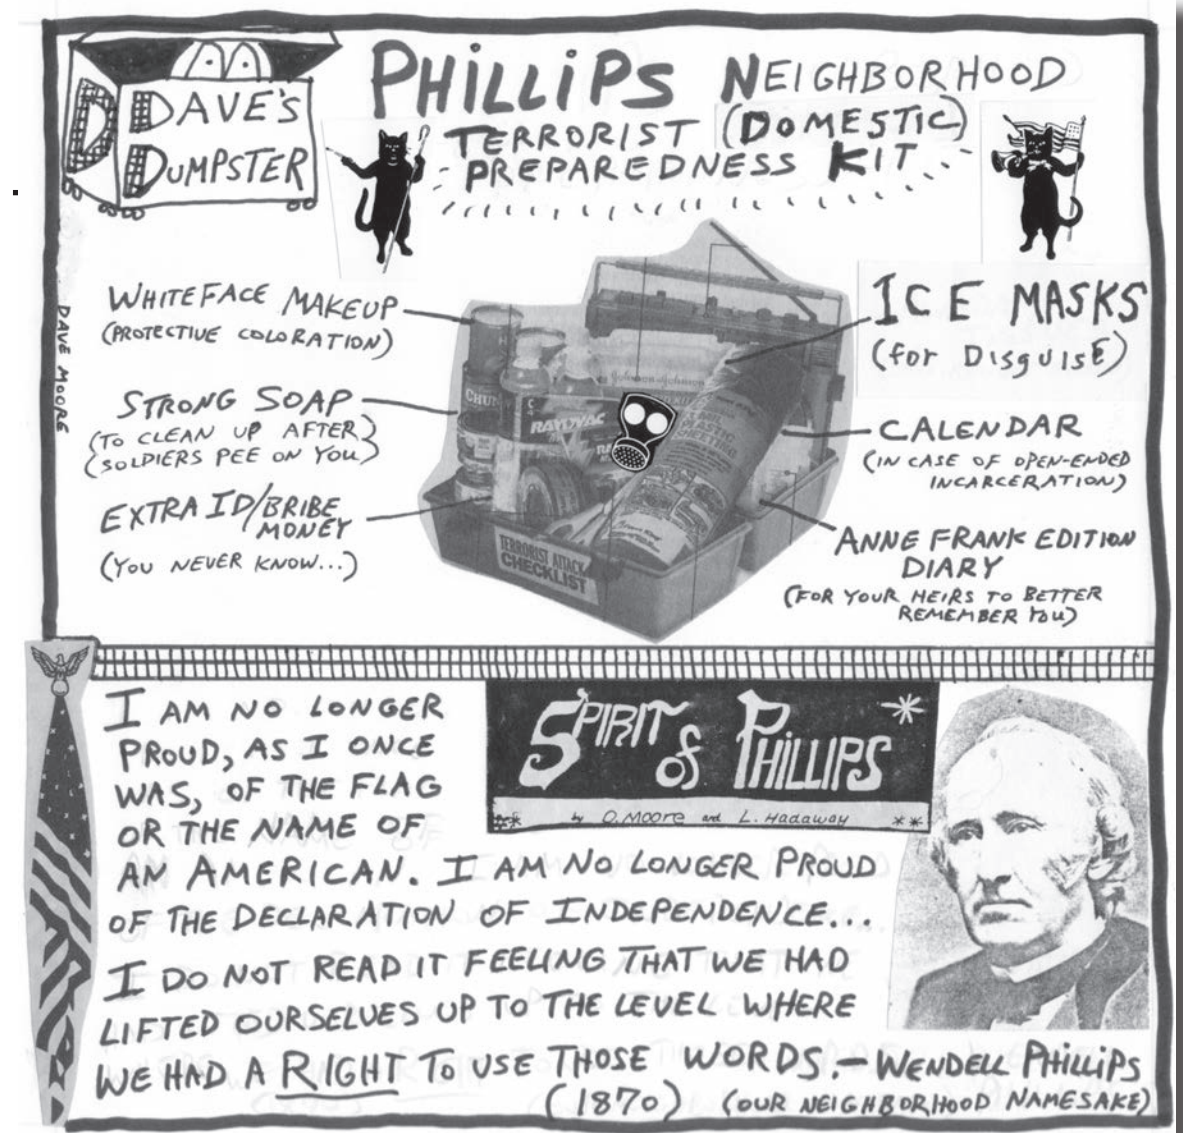 DAVE'S
DUMPSTER
D
PHILLIPS NEIGHBORHOOD
TERRORIST (DOMESTIC)
PREPAREDNESS KIT
DAVE MOORE
WHITEFACE MAKEUP
(PROTECTIVE COLORATION)
STRONG SOAP
(TO CLEAN UP AFTER)
(SOLDIERS PEE ON YOU)
EXTRA ID/BRIBE
MONEY
(YOU NEVER KNOW...)
ICE MASKS
(for DisguisE)
CALENDAR
(IN CASE OF OPEN-ENDED
INCARCERATION)
ANNE FRANK EDITION
DIARY
(FOR YOUR HEIRS TO BETTER
REMEMBER YOU)
Johnson & Johnson
CHUN
RAYOVAC
RA
PLASTIC
SHEETING
TERRORIST ATTACK
CHECKLIST
SPIRIT of PHILLIPS
by D. Moore and L. Hadaway
I AM NO LONGER
PROUD, AS I ONCE
WAS, OF THE FLAG
OR THE NAME OF
AN AMERICAN. I AM NO LONGER PROUD
OF THE DECLARATION OF INDEPENDENCE...
I DO NOT READ IT FEELING THAT WE HAD
LIFTED OURSELVES UP TO THE LEVEL WHERE
WE HAD A RIGHT TO USE THOSE WORDS.- WENDELL PHILLIPS
(1870) (OUR NEIGHBORHOOD NAMESAKE)